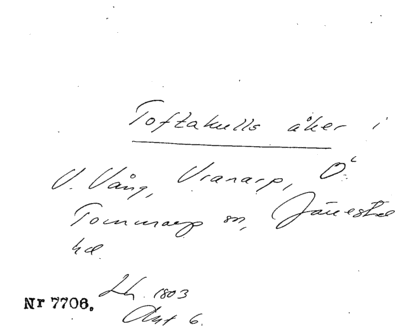 Toftakulls åker i
V. Vång, Vranarp, Ö.
Tommarp sn, Järrestad
hd.
Lh. 1803
Akt 6.
Nr 7706.